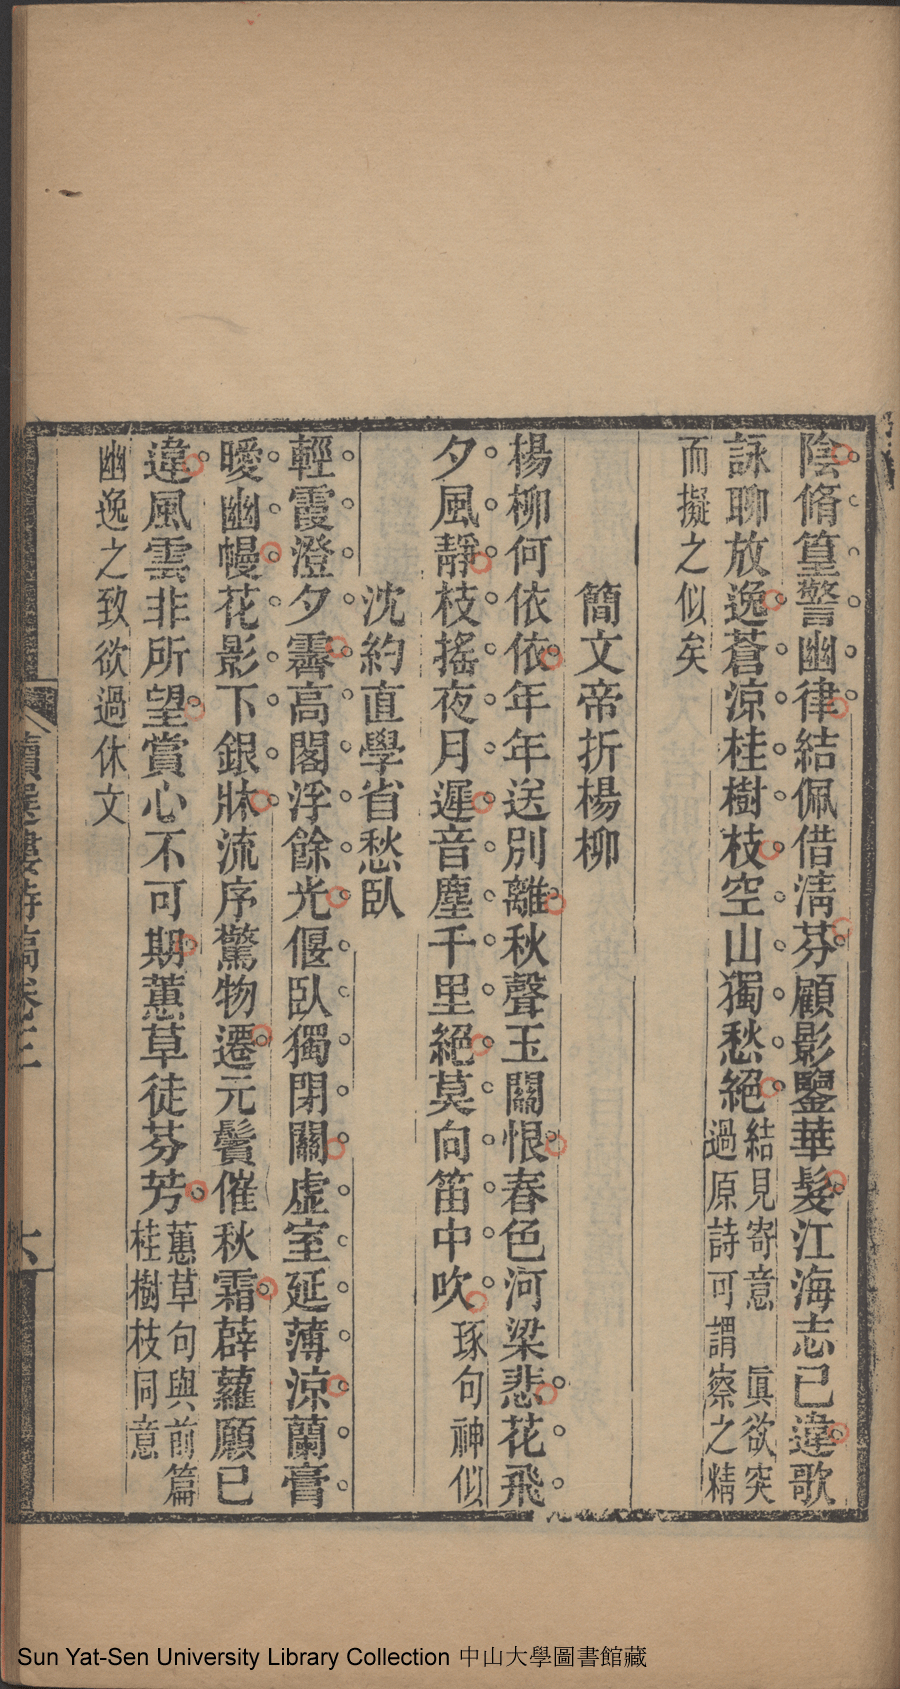 陰脩篁警幽律結佩借淸芬顧影鑒華髮江海志已違歌
詠聊放逸蒼涼桂樹枝空山獨愁絕
結見寄意 眞欲突
過原詩可謂察之精
而擬之似矣
簡文帝折楊柳
楊柳何依依年年送別離秋聲玉關恨春色河梁悲花飛
夕風靜枝搖夜月遲音塵千里絕莫向笛中吹
琢句神似
沈約直學省愁臥
輕霞澄夕霽高閣浮餘光偃臥獨閉關虛室延薄涼蘭膏
曖幽幔花影下銀牀流序驚物遷元鬢催秋霜薜蘿願已
違風雲非所望賞心不可期蕙草徒芬芳
蕙草句與前篇
桂樹枝同意
幽逸之致欲過休文
讀選樓詩稿卷三
六
Sun Yat-Sen University Library Collection 中山大學圖書館藏